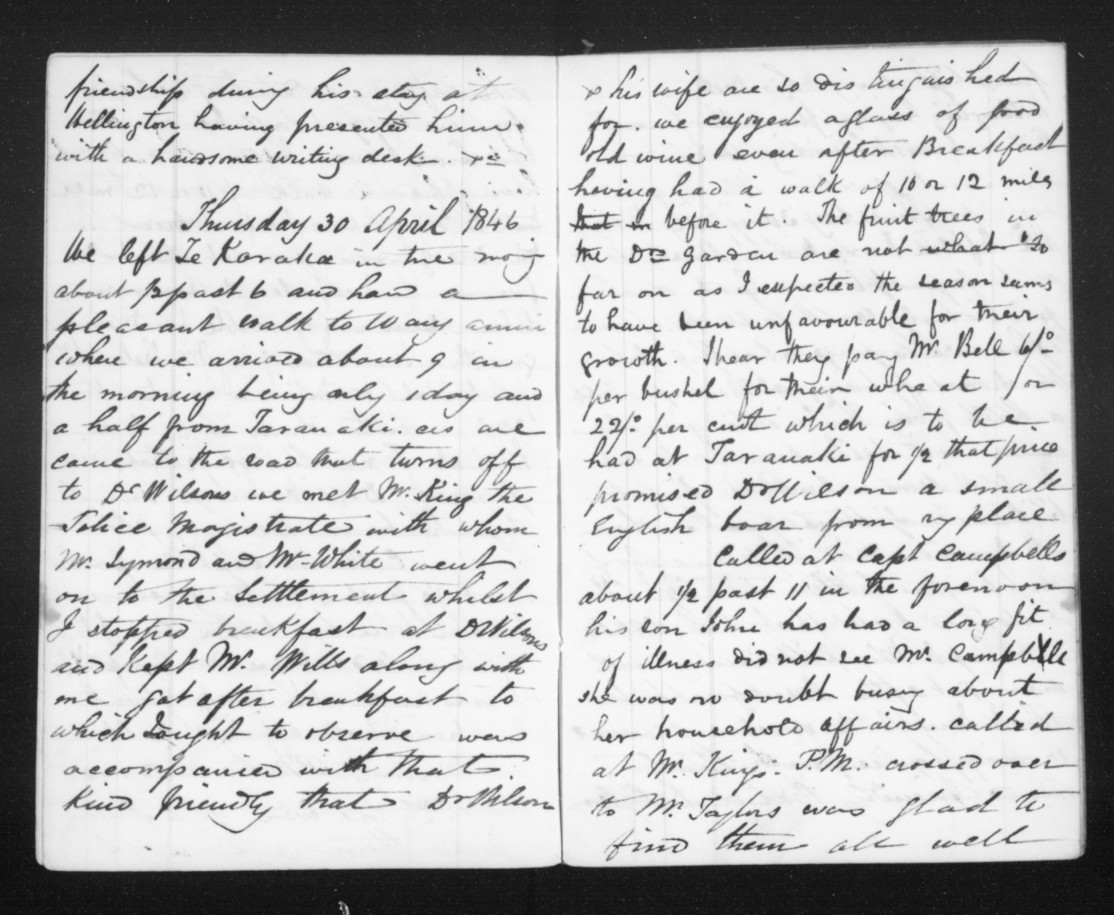 friendship during his stay at
Wellington having presented him
with a handsome writing desk &c
Thursday 30 April 1846
We left Te Karaka in the mog
about ½ past 6 and had a
pleasant walk to
when we arrived about 9 in
the morning being only 1 day and
a half from Taranaki. as we
came to the road that turns off
to Dr Wilsons we met Mr. King the
Police Magistrate with whom
Mr. Symond and Mr White went
on to the Settlement whilst
I stopped breakfast at Dr Wilsons
and kept Mr. Wills along with
me got after breakfast to
which I ought to observe was
accompanied with that
kind friendly that Dr Wilson
& his wife are so distinguished
for. we enjoyed a glass of good
old wine even after Breakfast
having had a walk of 10 or 12 miles
that in before it. The fruit trees in
the Drs garden are not what so
far on as I expected the season seems
to have been unfavourable for their
growth. I hear they pay Mr. Bell 6/-
per bushel for their wheat / or
22/- per cwt which is to be
had at Taranaki for ½ that price
promised Dr Wilson a small
English boar from my place
Called at Capt Campbells
about ½ past 11 in the forenoon
his son John has had a long fit
of illness did not see Mr. Campbell
she was no doubt busy about
her household affairs. called
at Mr. Kings. P.M. crossed over
to Mr. Taylors was glad to
find them all well